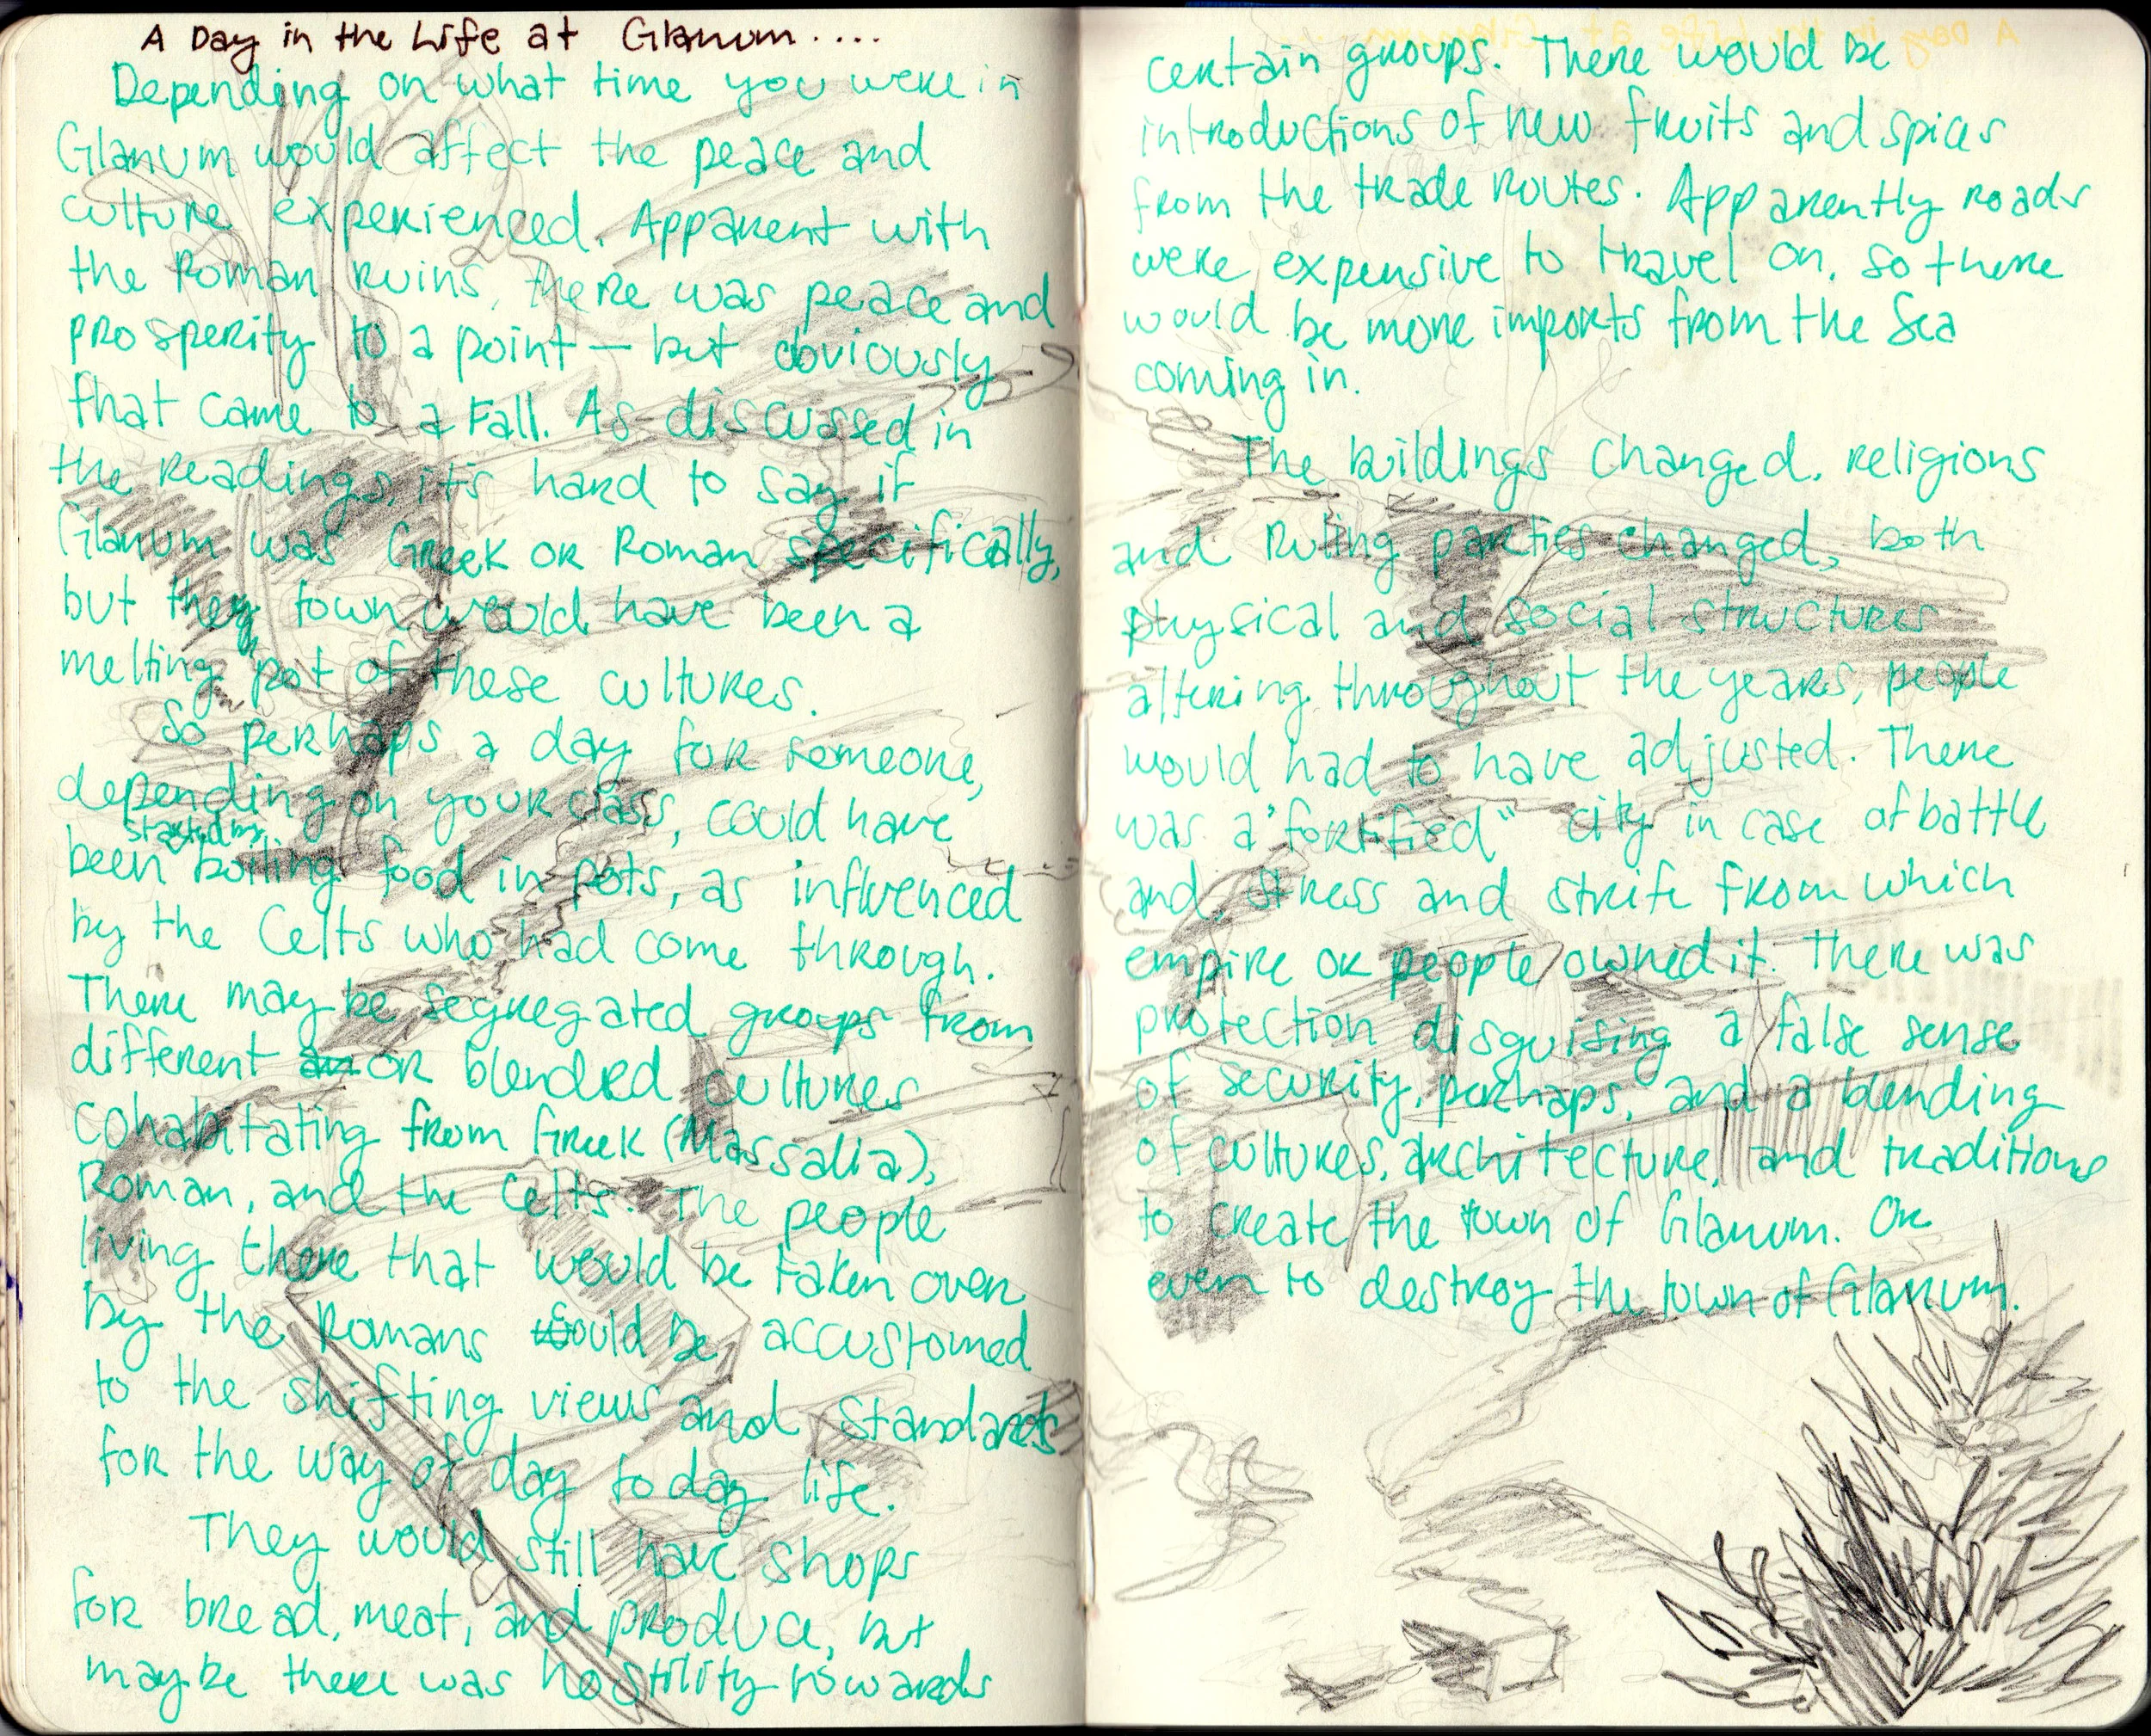 A Day in the Life at Glanum....
Depending on what time you were in
Glanum would affect the peace and
culture experienced. Apparent with
the Roman ruins, there was peace and
prosperity to a point — but obviously
that came to a Fall. As discussed in
the readings, it's hard to say if
Glanum was Greek or Roman specifically,
but they town would have been a
melting pot of these cultures.
So perhaps a day for someone,
depending on your class, could have
started by
been boiling food in pots, as influenced
by the Celts who had come through.
There may be segregated groups from
different or blended cultures
cohabitating from Greek (Massalia),
Roman, and the Celts. The people
living there that would be taken over
by the Romans would be accustomed
to the shifting views and standards
for the way of day to day life.
They would still have shops
for bread, meat, and produce, but
maybe there was hostility towards
certain groups. There would be
introductions of new fruits and spices
from the trade routes. Apparently roads
were expensive to travel on, so there
would be more imports from the Sea
coming in.
The buildings changed, religions
and ruling parties changed, both
physical and social structures
altering throughout the years, people
would had to have adjusted. There
was a "fortified" city in case of battle
and, stress and strife from which
empire or people owned it. There was
protection disguising a false sense
of security, perhaps, and a blending
of cultures, architecture, and traditions
to create the town of Glanum. Or
even to destroy the town of Glanum.